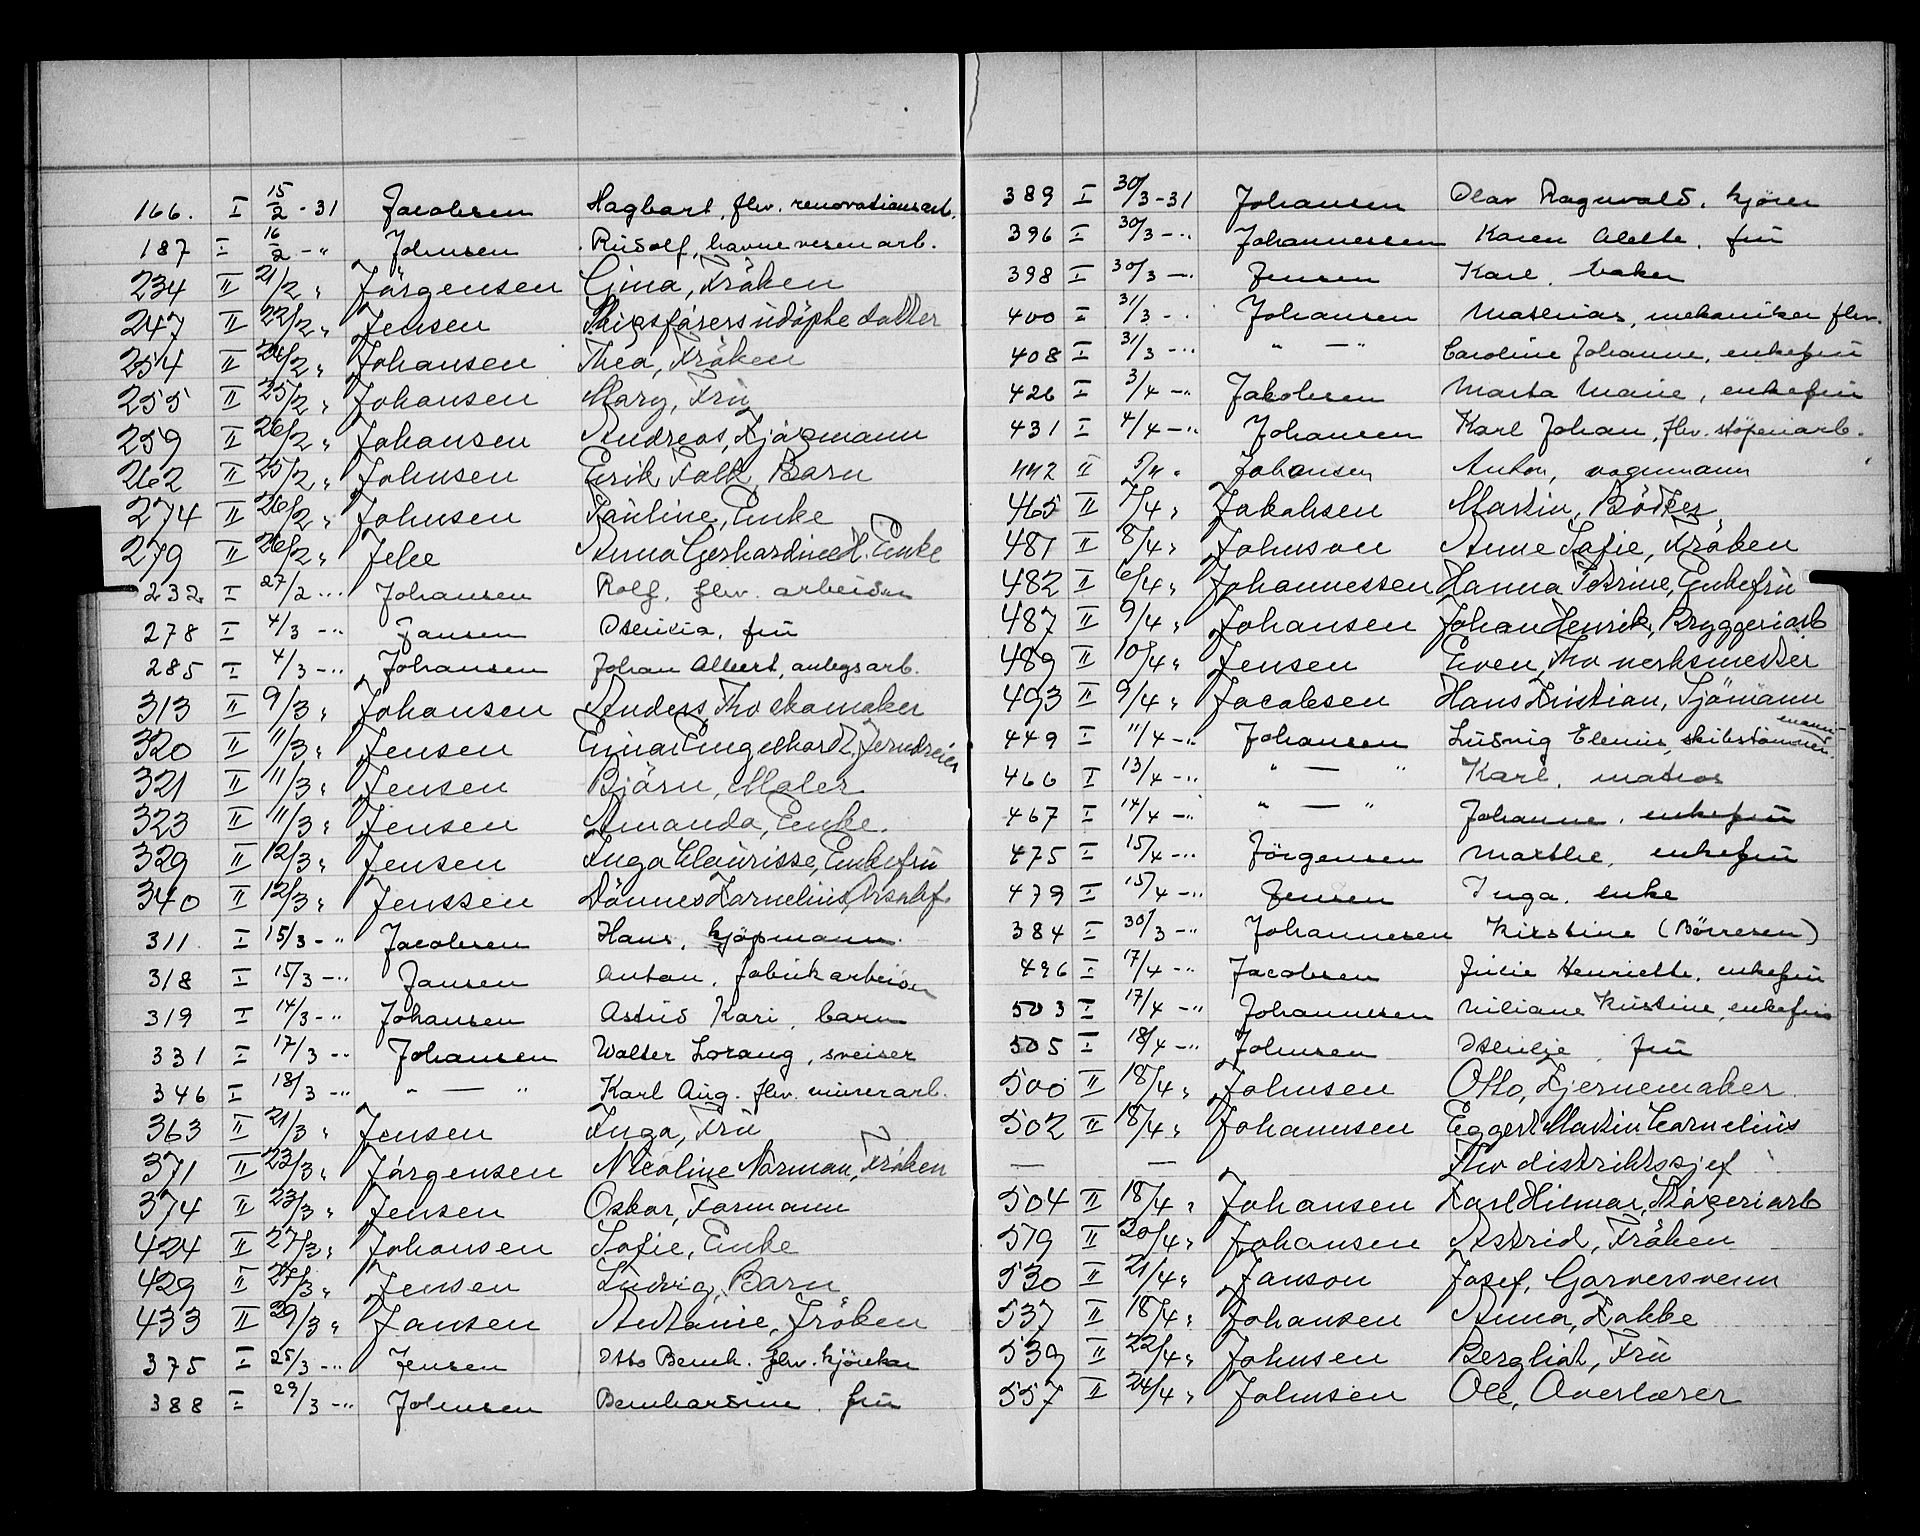 166. I 15/2 - 31 Jacobsen Hagbart, fhv. renovationsarb.
187 I 16/2 - " Johnsen Rudolf, havnevesenarb.
234 II 21/2 " Jörgensen Gina, Fröken
247 II 22/2 " Jensen Skipsförers udöpte datter
254 II 24/2 " Johansen Thea, Fröken
255 II 25/2 " Johansen Mary, Fru
259 II 26/2 " Johansen Andreas, Kjöpmann
262 II 25/2 " Johnsen Erik Falk, Barn
274 II 26/2 " Johnsen Pauline, Enke
279 II 26/2 " Jelee Anna Gerhardine H. Enke
232 I 27/2 - " Johansen Rolf, fhv. arbeider
278 I 4/3 - " Jansen Othilia, fru
285 I 4/3 - " Johansen Johan Albert, anlegsarb.
313 II 9/3 " Johansen Anders, Fhv skomaker
320 II 11/3 " Jensen Einar Engelhardt, Jerndreier
321 II 11/3 " Jensen Björn, Maler
323 II 11/3 " Jensen Amanda, Enke.
329 II 12/3 " Jensen Inga Claurisse, Enkefru
340 II 12/3 " Jenssen Dönnes Kornelius,
311 I 15/3 - " Jacobsen Hans, kjöpmann.
318 I 15/3 - " Jansen Anton, fabrikarbeider
319 I 14/3 - " Johansen Astrid Kari, barn
331 I 17/3 - " Johansen Walter Lorang, sveiser
346 I 18/3 - " " — " Karl Aug. fhv. murerarb.
363 II 21/3 " Jensen Inga, Fru
371 II 23/3 " Jörgensen Nicoline Norman, Fröken
374 II 23/3 " Jensen Oskar, Formann
424 II 27/3 " Johansen Sofie, Enke
429 II 27/3 " Jensen Ludvig, Barn
433 II 29/3 " Jansen Antonie, Fröken
375 I 25/3 - " Jensen Otto Bernh. fhv. kjörekar
388 I 29/3 - " Johnsen Bernhardine, fru
389 I 30/3 - 31 Johansen Olav Ragnvald, kjörer
396 I 30/3 - " Johannessen Karen Alette, fru
398 I 30/3 - " Jensen Karl, baker
400 I 31/3 - " Johansen Mathias, mekaniker fhv.
408 I 31/3 - " " — " Caroline Johanne, enkefru
426 I 3/4 - " Jakobsen Marta Marie, enkefru
431 I 4/4 - " Johansen Karl Johan, fhv. stöperiarb.
442 II 5/4 " Johansen Anton, vognmann
465 II 7/4 " Jakobsen Martin, Bödker
481 II 8/4 " Johnson Anne Sofie, Fröken
482 II 6/4 " Johannessen Hanna Petrine, Enkefru
487 II 9/4 " Johansen Johan Henrik, Bryggeriarb
489 II 10/4 " Jensen Even, Fhv verksmester
493 II 9/4 " Jacobsen Hans Kristian, Sjömann
449 I 11/4 - " Johansen Ludvig Elenius, skibstömmermann.
466 I 13/4 - " " — " Karl, matros
467 I 14/4 - " " — " Johanne, enkefru
475 I 15/4 - " Jörgensen Marthe, enkefru
479 I 15/4 - " Jensen Inga, enke
384 I 30/3 - " Johannesen Kirstine (Börresen)
496 I 17/4 - " Jacobsen Julie Henriette, enkefru
503 I 17/4 - " Johannesen Miliane Kristine, enkefru
505 I 18/4 - " Johnsen Othilje, fru
500 II 18/4 " Johnsen Otto, Kjernemaker
502 II 18/4 " Johannsen Eggert Martin Cornelius
— — Fhv distriktssjef
504 II 18/4 " Johansen Karl Hilmar, Stöperiarb
519 II 20/4 " Johansen Astrid, Fröken
530 II 21/4 " Janson Josef, Garversvenn
537 II 18/4 " Johansen Anna, Kokke
539 II 22/4 " Johnsen Bergliot, Fru
557 II 24/4 " Johnsen Ole, Overlærer